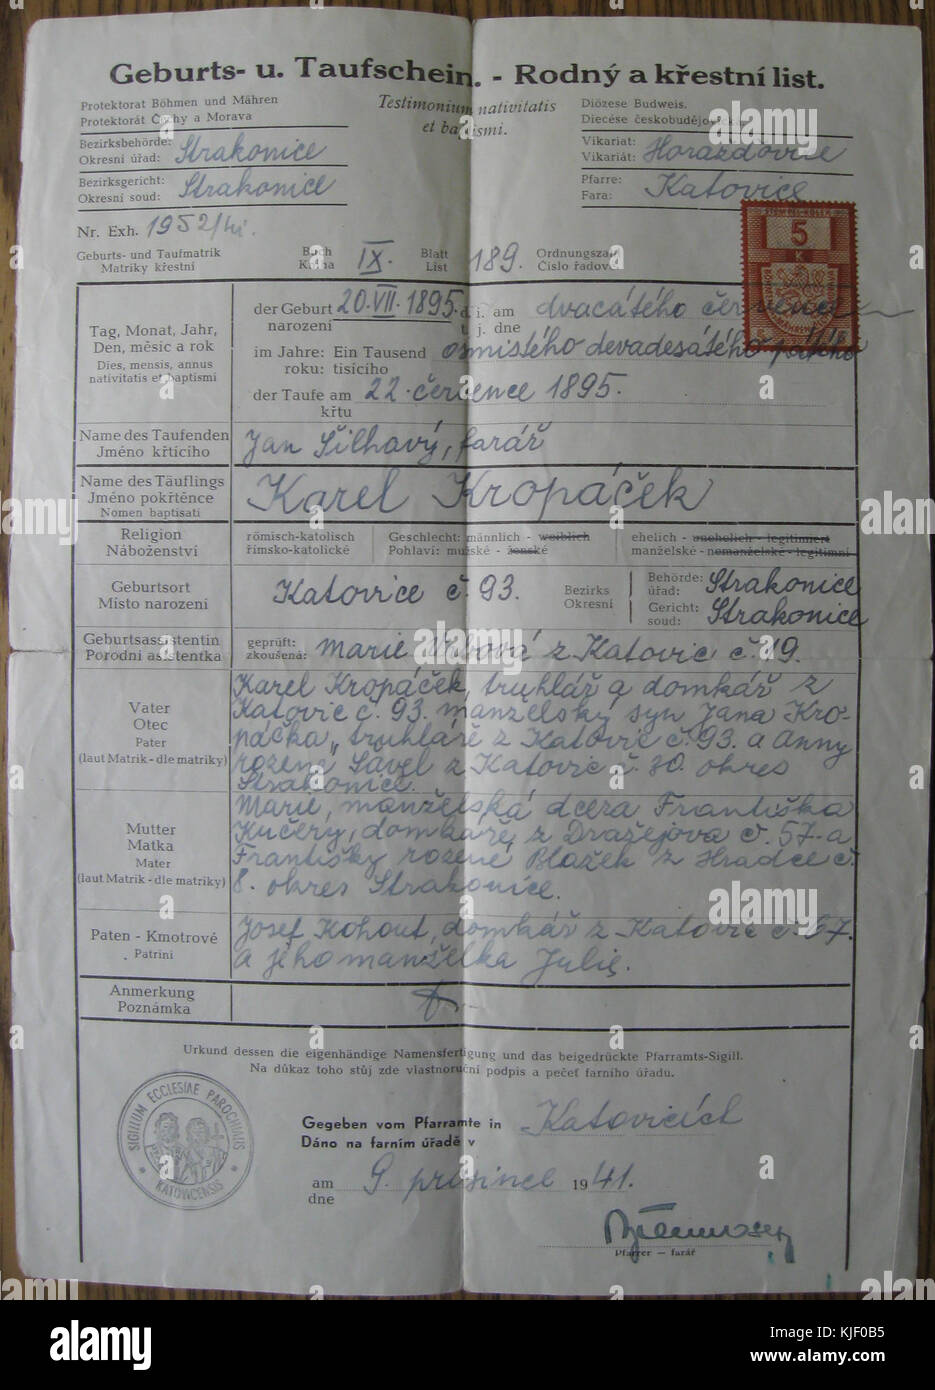 Geburts- u. Taufschein. - Rodný a křestní list.
Protektorat Böhmen und Mähren
Protektorát Čechy a Morava
Testimonium nativitatis
et baptismi.
Diözese Budweis.
Diecése českobudějovická
Bezirksbehörde:
Okresní úřad: Strakonice
Vikariat:
Vikariát: Horažďovice
Bezirksgericht:
Okresní soud: Strakonice
Pfarre:
Fara: Katovice
Nr. Exh. 1952/
Geburts- und Taufmatrik
Matriky křestní
Buch
Kniha IX.
Blatt
List 189.
Ordnungszahl
Číslo řadové
5
K
Tag, Monat, Jahr,
Den, měsíc a rok
Dies, mensis, annus
nativitatis et baptismi
der Geburt
narození 20.VII.1895.
d. i. am
t. j. dne dvacátého července
im Jahre: Ein Tausend
roku: tisícího osmistého devadesátého pátého
der Taufe am
křtu 22. července 1895.
Name des Taufenden
Jméno křtícího
Jan Šilhavý, farář
Name des Täuflings
Jméno pokřtěnce
Nomen baptisati
Karel Kropáček
Religion
Náboženství
römisch-katolisch
římsko-katolické
Geschlecht: männlich - weiblich
Pohlaví: mužské - ženské
ehelich - unehelich - legitimiert
manželské - nemanželské - legitimní
Geburtsort
Místo narození
Katovice č. 93.
Bezirks
Okresní
Behörde:
úřad: Strakonice
Gericht:
soud: Strakonice
Geburtsassistentin
Porodní asistentka
geprüft:
zkoušená: Marie Vrbová z Katovic č. 19.
Vater
Otec
Pater
(laut Matrik - dle matriky)
Karel Kropáček, truhlář a domkář z
Katovic č. 93. manželský syn Jana Kro-
páčka, truhláře z Katovic č. 93. a Anny
rozené Sável z Katovic č. 30. okres
Strakonice.
Mutter
Matka
Mater
(laut Matrik - dle matriky)
Marie, manželská dcera Františka
Kučery, domkáře z Dražejova č. 57. a
Františky rozené Blažek z Hradce č.
8. okres Strakonice.
Paten - Kmotrové
Patrini
Josef Kohout, domkář z Katovic č. 57.
a jeho manželka Julie.
Anmerkung
Poznámka
Urkund dessen die eigenhändige Namensfertigung und das beigedrückte Pfarramts-Sigill.
Na důkaz toho stůj zde vlastnoruční podpis a pečeť farního úřadu.
SIGILLUM ECCLESIAE PAROCHIALIS
KATOVICENSIS
Gegeben vom Pfarramte in
Dáno na farním úřadě v Katovicích
am
dne 9. prosince 1941.
Pfarrer — farář
alamy
Image ID: KJF0B5
www.alamy.com